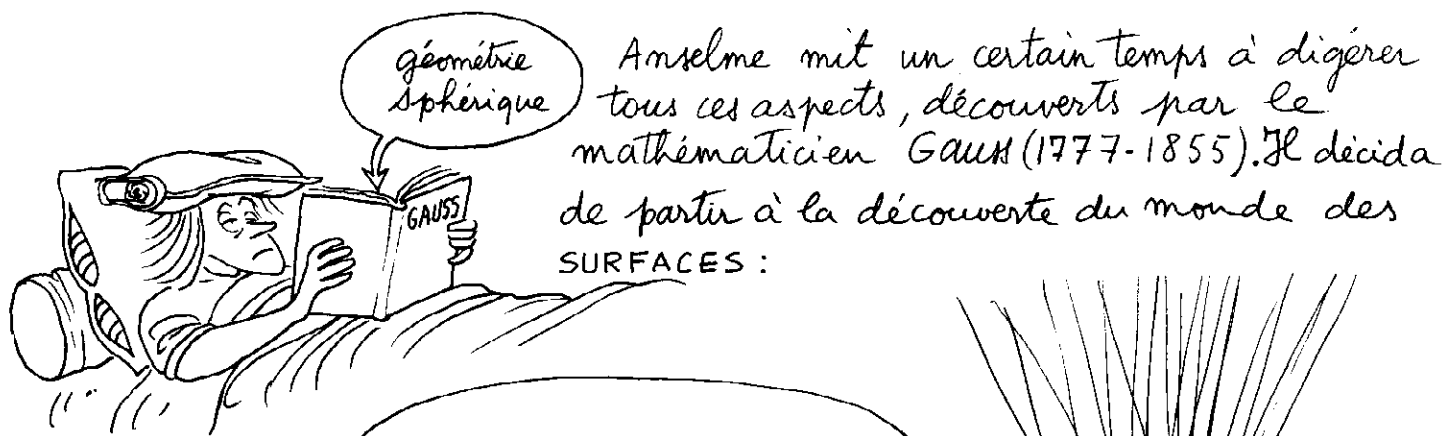 géométrie
sphérique
GAUSS
Anselme mit un certain temps à digérer
tous ces aspects, découverts par le
mathématicien Gauss (1777-1855). Il décida
de partir à la découverte du monde des
SURFACES :